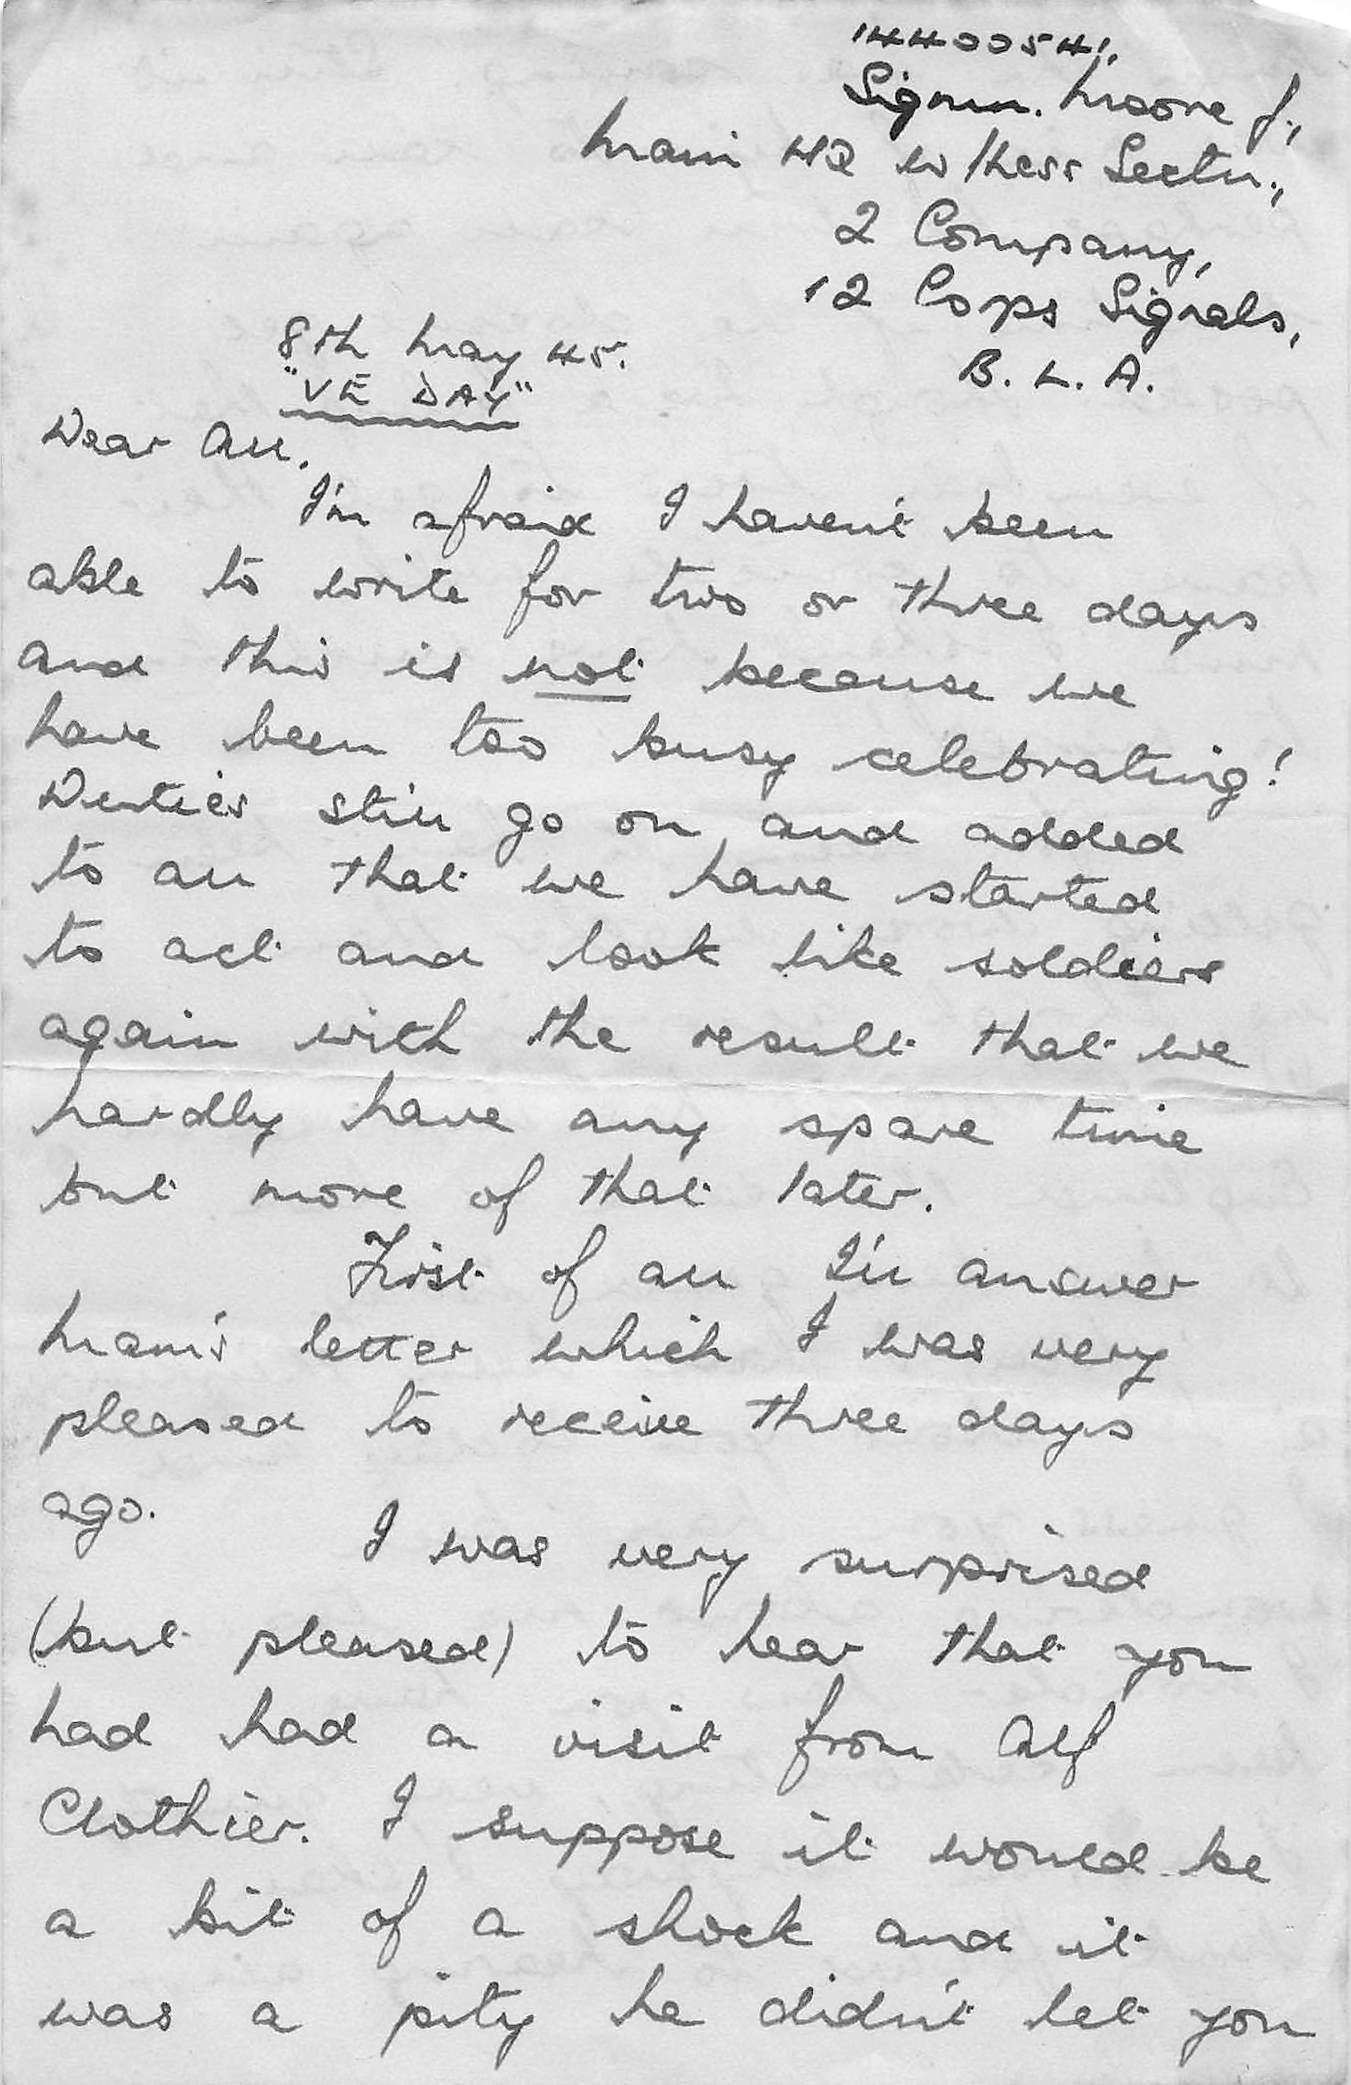 14400541.
Signm. Moore J.,
Main HQ W/Less Sectn.,
2 Company,
12 Corps Signals,
B. L. A.
8th May 45.
"VE DAY"
Dear All.
I'm afraid I haven't been
able to write for two or three days
and this is not because we
have been too busy celebrating!
Duties still go on and added
to all that we have started
to act and look like soldiers
again with the result that we
hardly have any spare time
but more of that later.
First of all I'll answer
Mam's letter which I was very
pleased to receive three days
ago.
I was very surprised
(but pleased) to hear that you
had had a visit from Alf
Clothier. I suppose it would be
a bit of a shock and it
was a pity he didn't let you